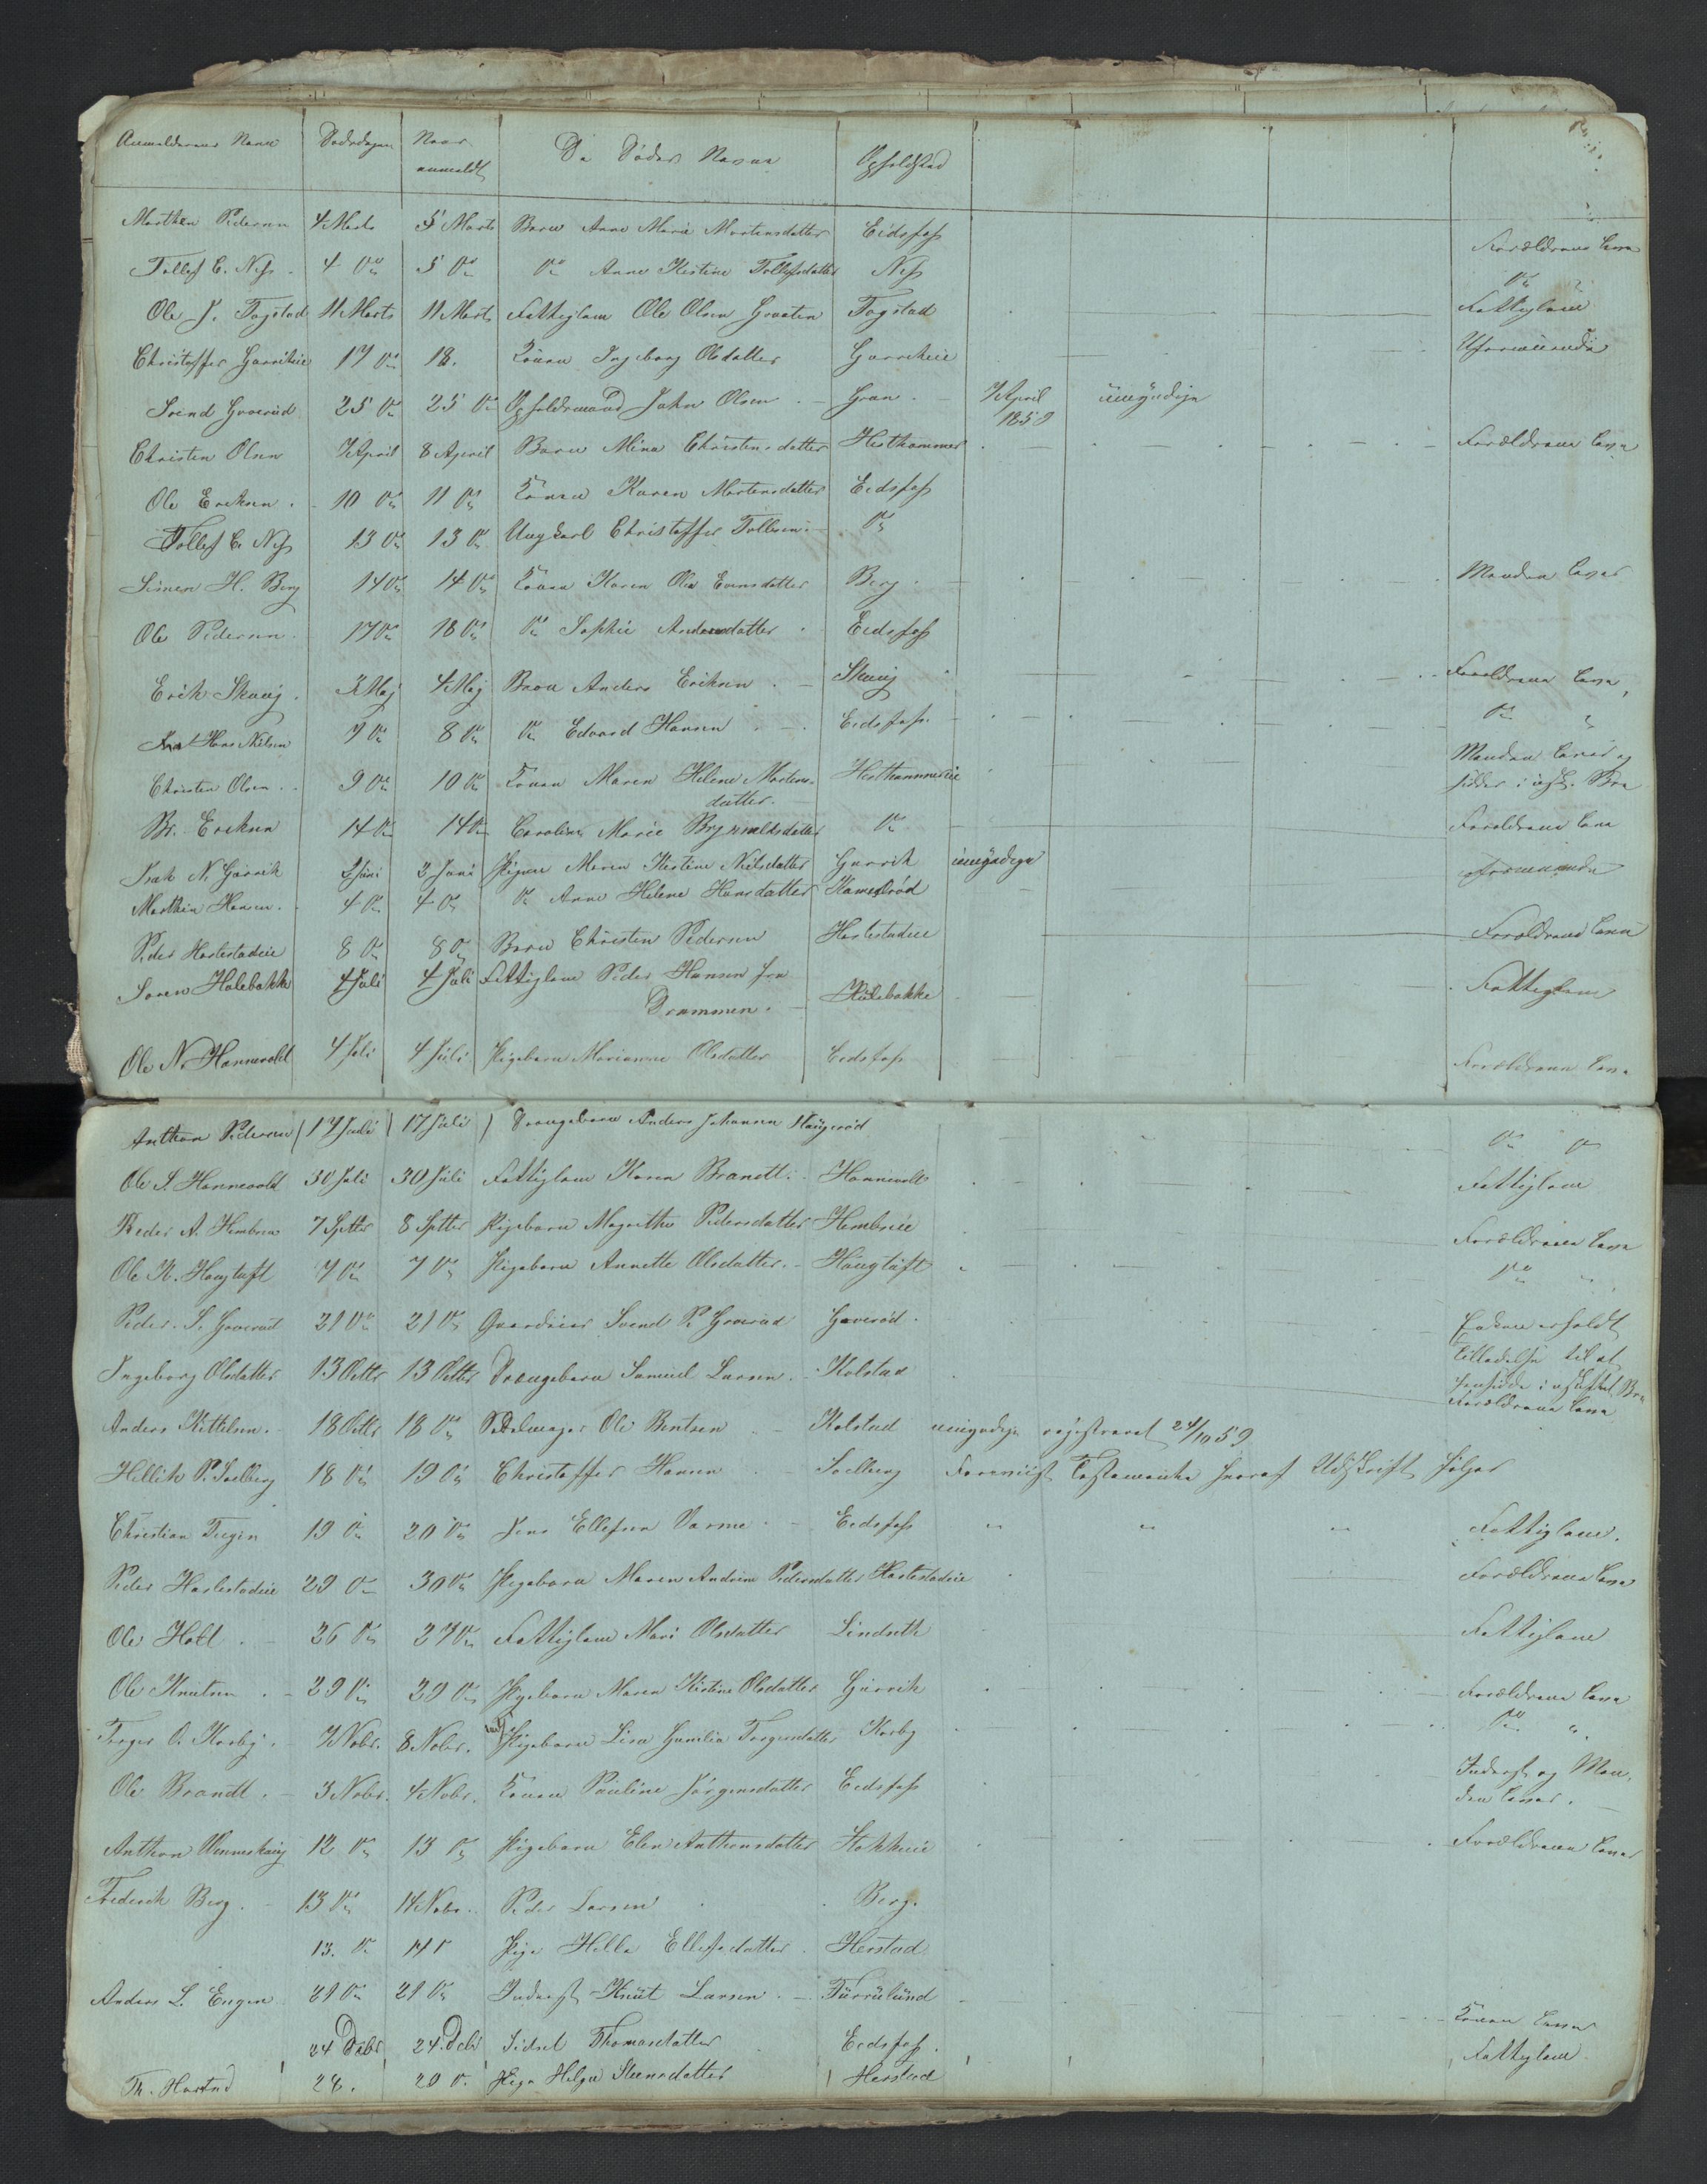 Anmelderens Navn Dødsdagen Naar anmeldt De Dødes Navne Opholdsted
Marthin Pedersen 4 Marts 5 Marts Barn Anne Marie Mortensdatter Eidsfoss Forældrene leve
Tollef C. Næss 4 Do 5 Do Do Anne Kirstine Tollefsdatter Næss Do
Ole J. Fogstad 11 Marts 11 Marts Fattiglem Ole Olsen Fogstad Fattiglem
Christoffer 17 Do 18. Konen Ingeborg Olsdatter Uformuende
Svend Groverud 25 Do 25 Do Opholdsmand John Olsen Gran 7 April 1859 umyndige
Christen Olsen 7 April 8 April Barn Mina Christensdatter Hesthammer Forældrene leve
Ole Eriksen 10 Do 11 Do Konen Karen Mortensdatter Eidsfoss
Tollef C. Næss 13 Do 13 Do Ungkarl Christoffer Tollefsen Do
Simen H. Berg 14 Do 14 Do Konen Karen Olea Evensdatter Berg Manden lever
Ole Pedersen 17 Do 18 Do Do Sophie Andersdatter Eidsfoss
Erik Skaug 3 Maj 4 Maj Barn Anders Eriksen Skaug Forældrene leve
Hans Nilsen 7 Do 8 Do Do Edvard Hansen Eidsfoss Do
Christen Olsen 9 Do 10 Do Konen Maren Helene Mortens- Hesthammereie Manden lever og
datter sidder i uskf. Bo
Br. Eriksen 14 Do 14 Do Caroline Marie Brynildsdatter Do Forældrene leve
Isak N. Gavrik 2 Juni 2 Juni Pigen Maren Kirstine Nielsdatter Gavrik umyndige
Marthin Hansen 4 Do 4 Do Do Anne Helene Hansdatter Kamesrød
Peder Harlestadeie 8 Do 8 Do Barn Christen Pedersen Harlestadeie Forældrene leve
Søren Holebakke 4 Juli 4 Juli Fattiglem Peder Hansen fra Holebakke Fattiglem
Drammen.
Ole N. Hannevold 4 Juli 4 Juli Pigebarn Marianne Olsdatter Eidsfoss Forældrene leve
Anthon Pedersen 17 Juli 17 Juli Drengebarn Anders Johansen Haugerød Do Do
Ole S. Hannevold 30 Juli 30 Juli Fattiglem Karen Brandt Hannevold Fattiglem
Peder A. 7 Septbr 8 Septbr Pigebarn Magrethe Pedersdatter Forældrene leve
Ole K. Haugtuft 7 Do 7 Do Pigebarn Annette Olsdatter Haugtuft Do
Peder S. Groverud 21 Do 21 Do Gaardeier Svend P. Groverud Groverød Enken erholdt
Tilladelse til at
Ingeborg Olsdatter 13 Octbr 13 Octbr Drengebarn Samuel Larsen Kolstad hensidde i uskiftet Bo
Forældrene leve
Anders Kittelsen 18 Octbr 18 Do Ole Bentsen Kolstad umyndige registreret 24/10 59
Hellik P. Solberg 18 Do 19 Do Christoffer Hansen Solberg Testamente hvoraf Udskrift følger
Christian Teigen 19 Do 20 Do Jens Ellefsen Varme Eidsfoss " " " Fattiglem.
Peder Harlestadeie 29 Do 30 Do Pigebarn Maren Andrine Pedersdatter Harlestadeie Forældrene leve
Ole Holt 26 Do 27 Do Fattiglem Mari Olsdatter Lindseth Fattiglem
Ole Knutsen 29 Do 29 Do Pigebarn Maren Kirstine Olsdatter Gavrik Forældrene leve
Torger O. Korby 7 Nobr. 8 Nobr. Pigebarn Lisa Gunilia Torgersdatter Korby Do "
Ole Brandt 3 Nobr. 4 Nobr. Konen Pauline Jørgensdatter Eidsfoss Inderst og Man-
den lever.
Anthon 12 Do 13 Do Pigebarn Elen Anthonsdatter Stokkeeie Forældrene lever
Frederik Berg 13 Do 14 Nobr. Peder Larsen Berg.
13. Do 14 D Pige Hella Ellefsdatter Herstad
Anders L. Engen 21 Do 21 Do Inderst Knut Larsen Furulund Konen lever
24 Debr 24. Debr Sidsel Thomasdatter Eidsfoss. Fattiglem
Th. Harstad 28. 29 D. Pige Helge Steensdatter Herstad